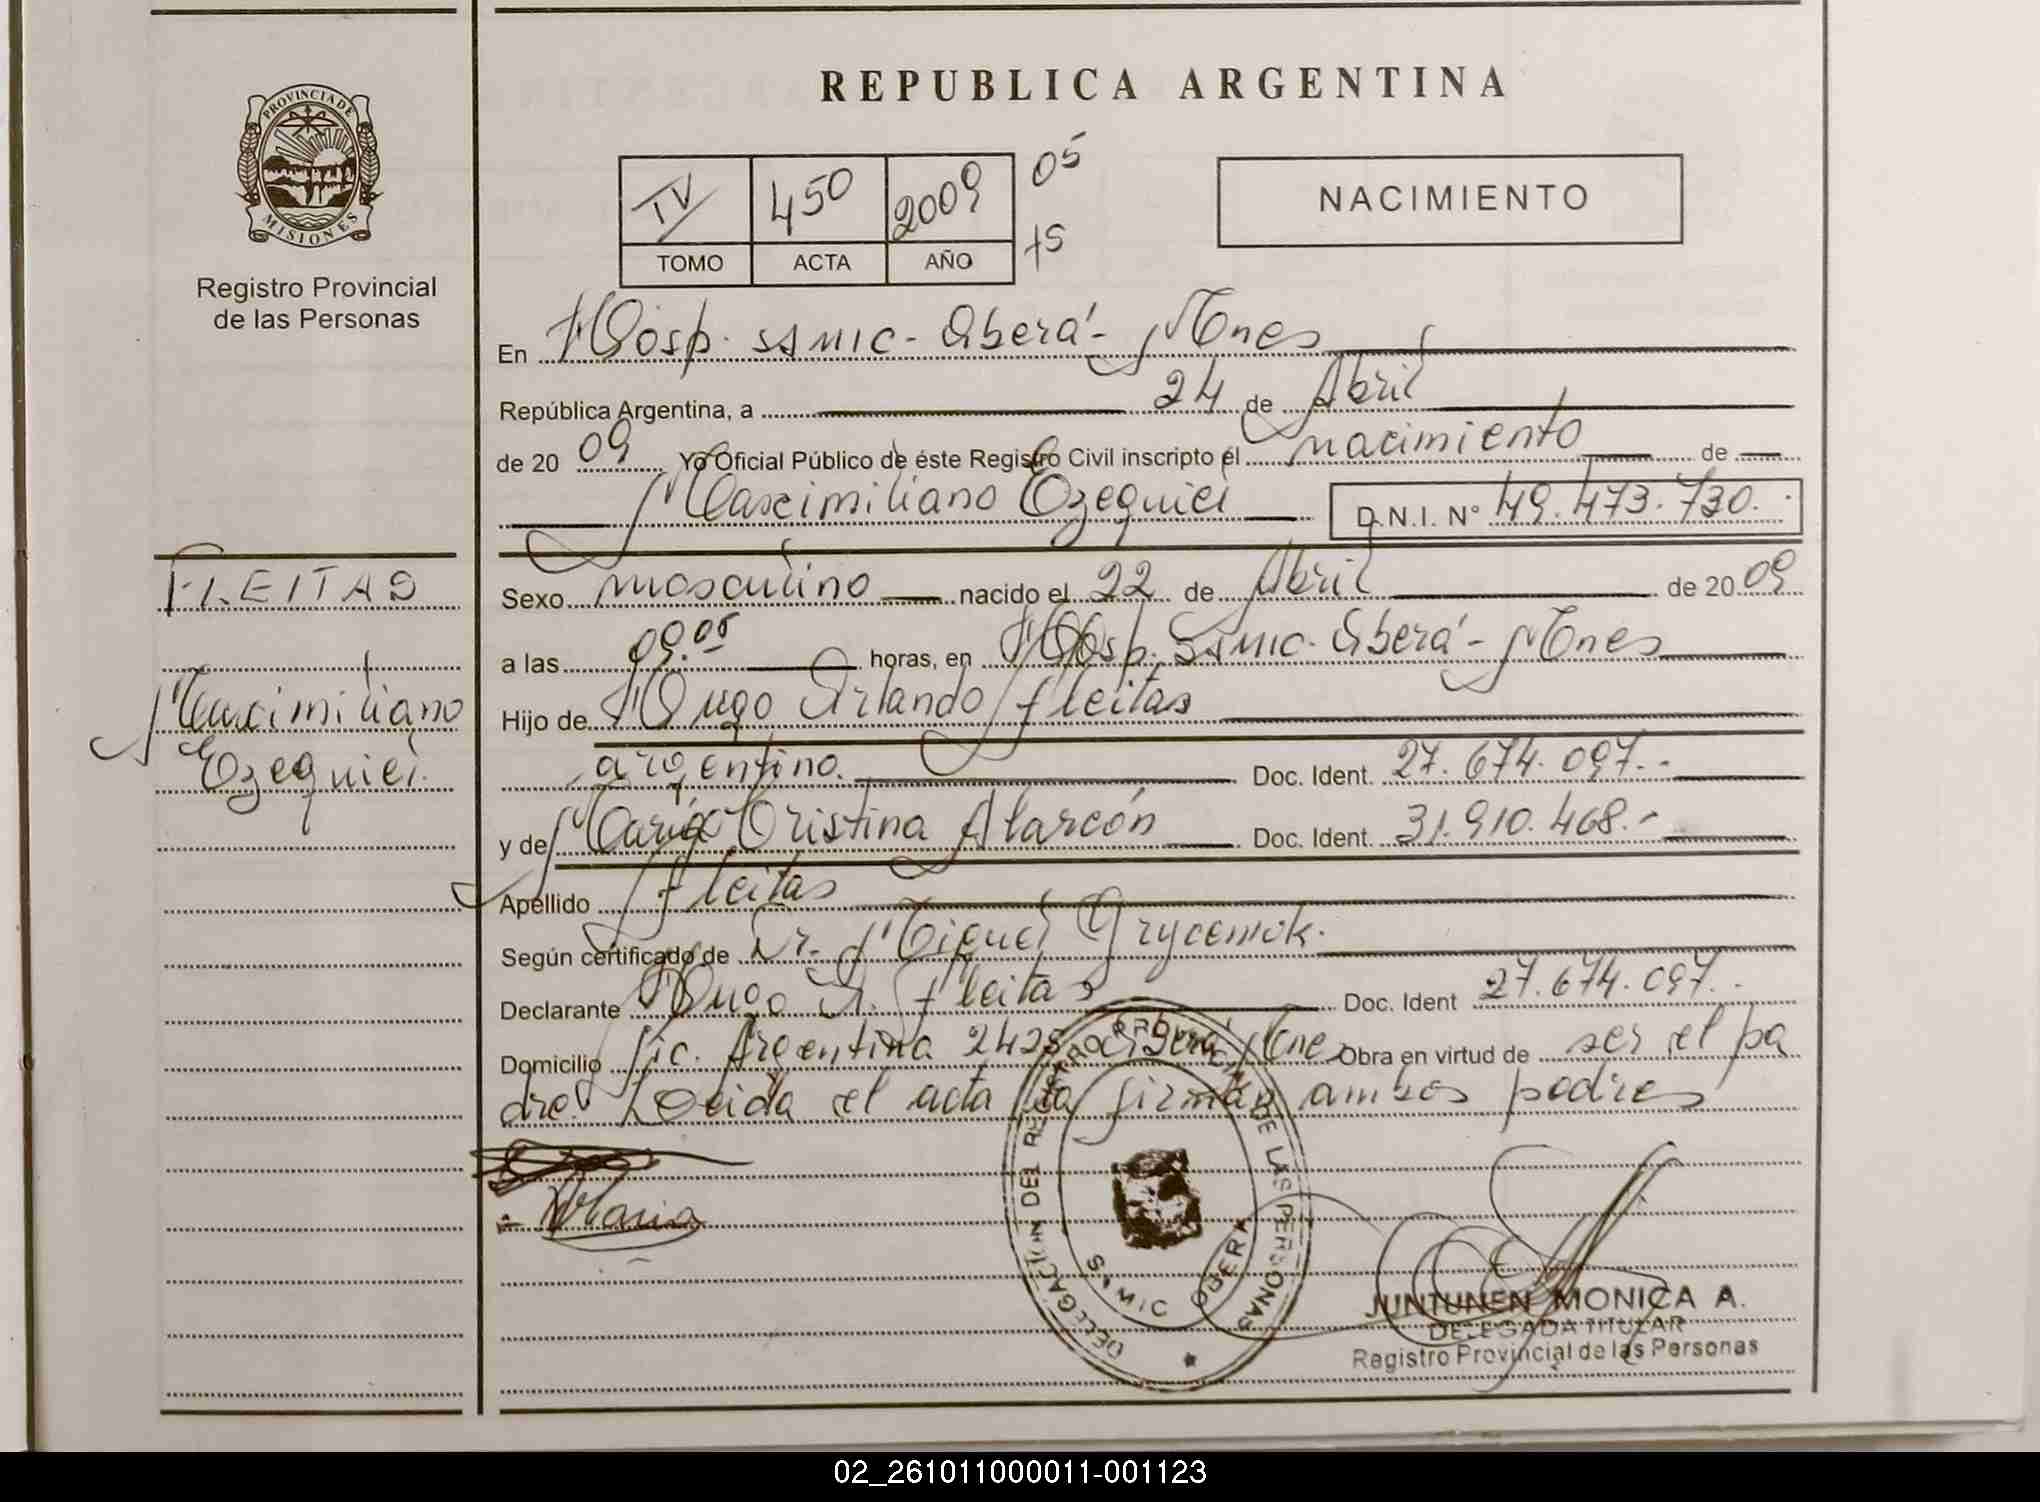 REPUBLICA ARGENTINA
PROVINCIA DE
MISIONES
Registro Provincial
de las Personas
IV 450 2009 05
15
TOMO ACTA AÑO
NACIMIENTO
En Hosp. SAMIC - Oberá - Mnes
República Argentina, a 24 de Abril
de 20 09 Yo Oficial Público de éste Registro Civil inscripto el nacimiento de
Maximiliano Ezequiel D.N.I. N° 49.473.730.
FLEITAS
Maximiliano
Ezequiel.
Sexo masculino nacido el 22 de Abril de 20 09
a las 09.05 horas, en Hosp. SAMIC - Oberá - Mnes
Hijo de Hugo Orlando Fleitas
argentino. Doc. Ident. 27.674.097.-
y de María Cristina Alarcón Doc. Ident. 31.910.468.-
Apellido Fleitas
Según certificado de Dr. Miguel
Declarante Hugo O. Fleitas Doc. Ident 27.674.097.-
Domicilio Argentina 2425 Oberá Mnes Obra en virtud de ser el pa
dre. Leída el acta la firman ambos padres
Maria
DELEGACION DEL REGISTRO PROVINCIAL DE LAS PERSONAS
SAMIC OBERA
JUNTUNEN MONICA A.
DELEGADA TITULAR
Registro Provincial de las Personas
02_261011000011-001123